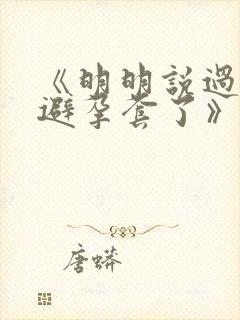 《明明説過
避孕套了》
唐蟒